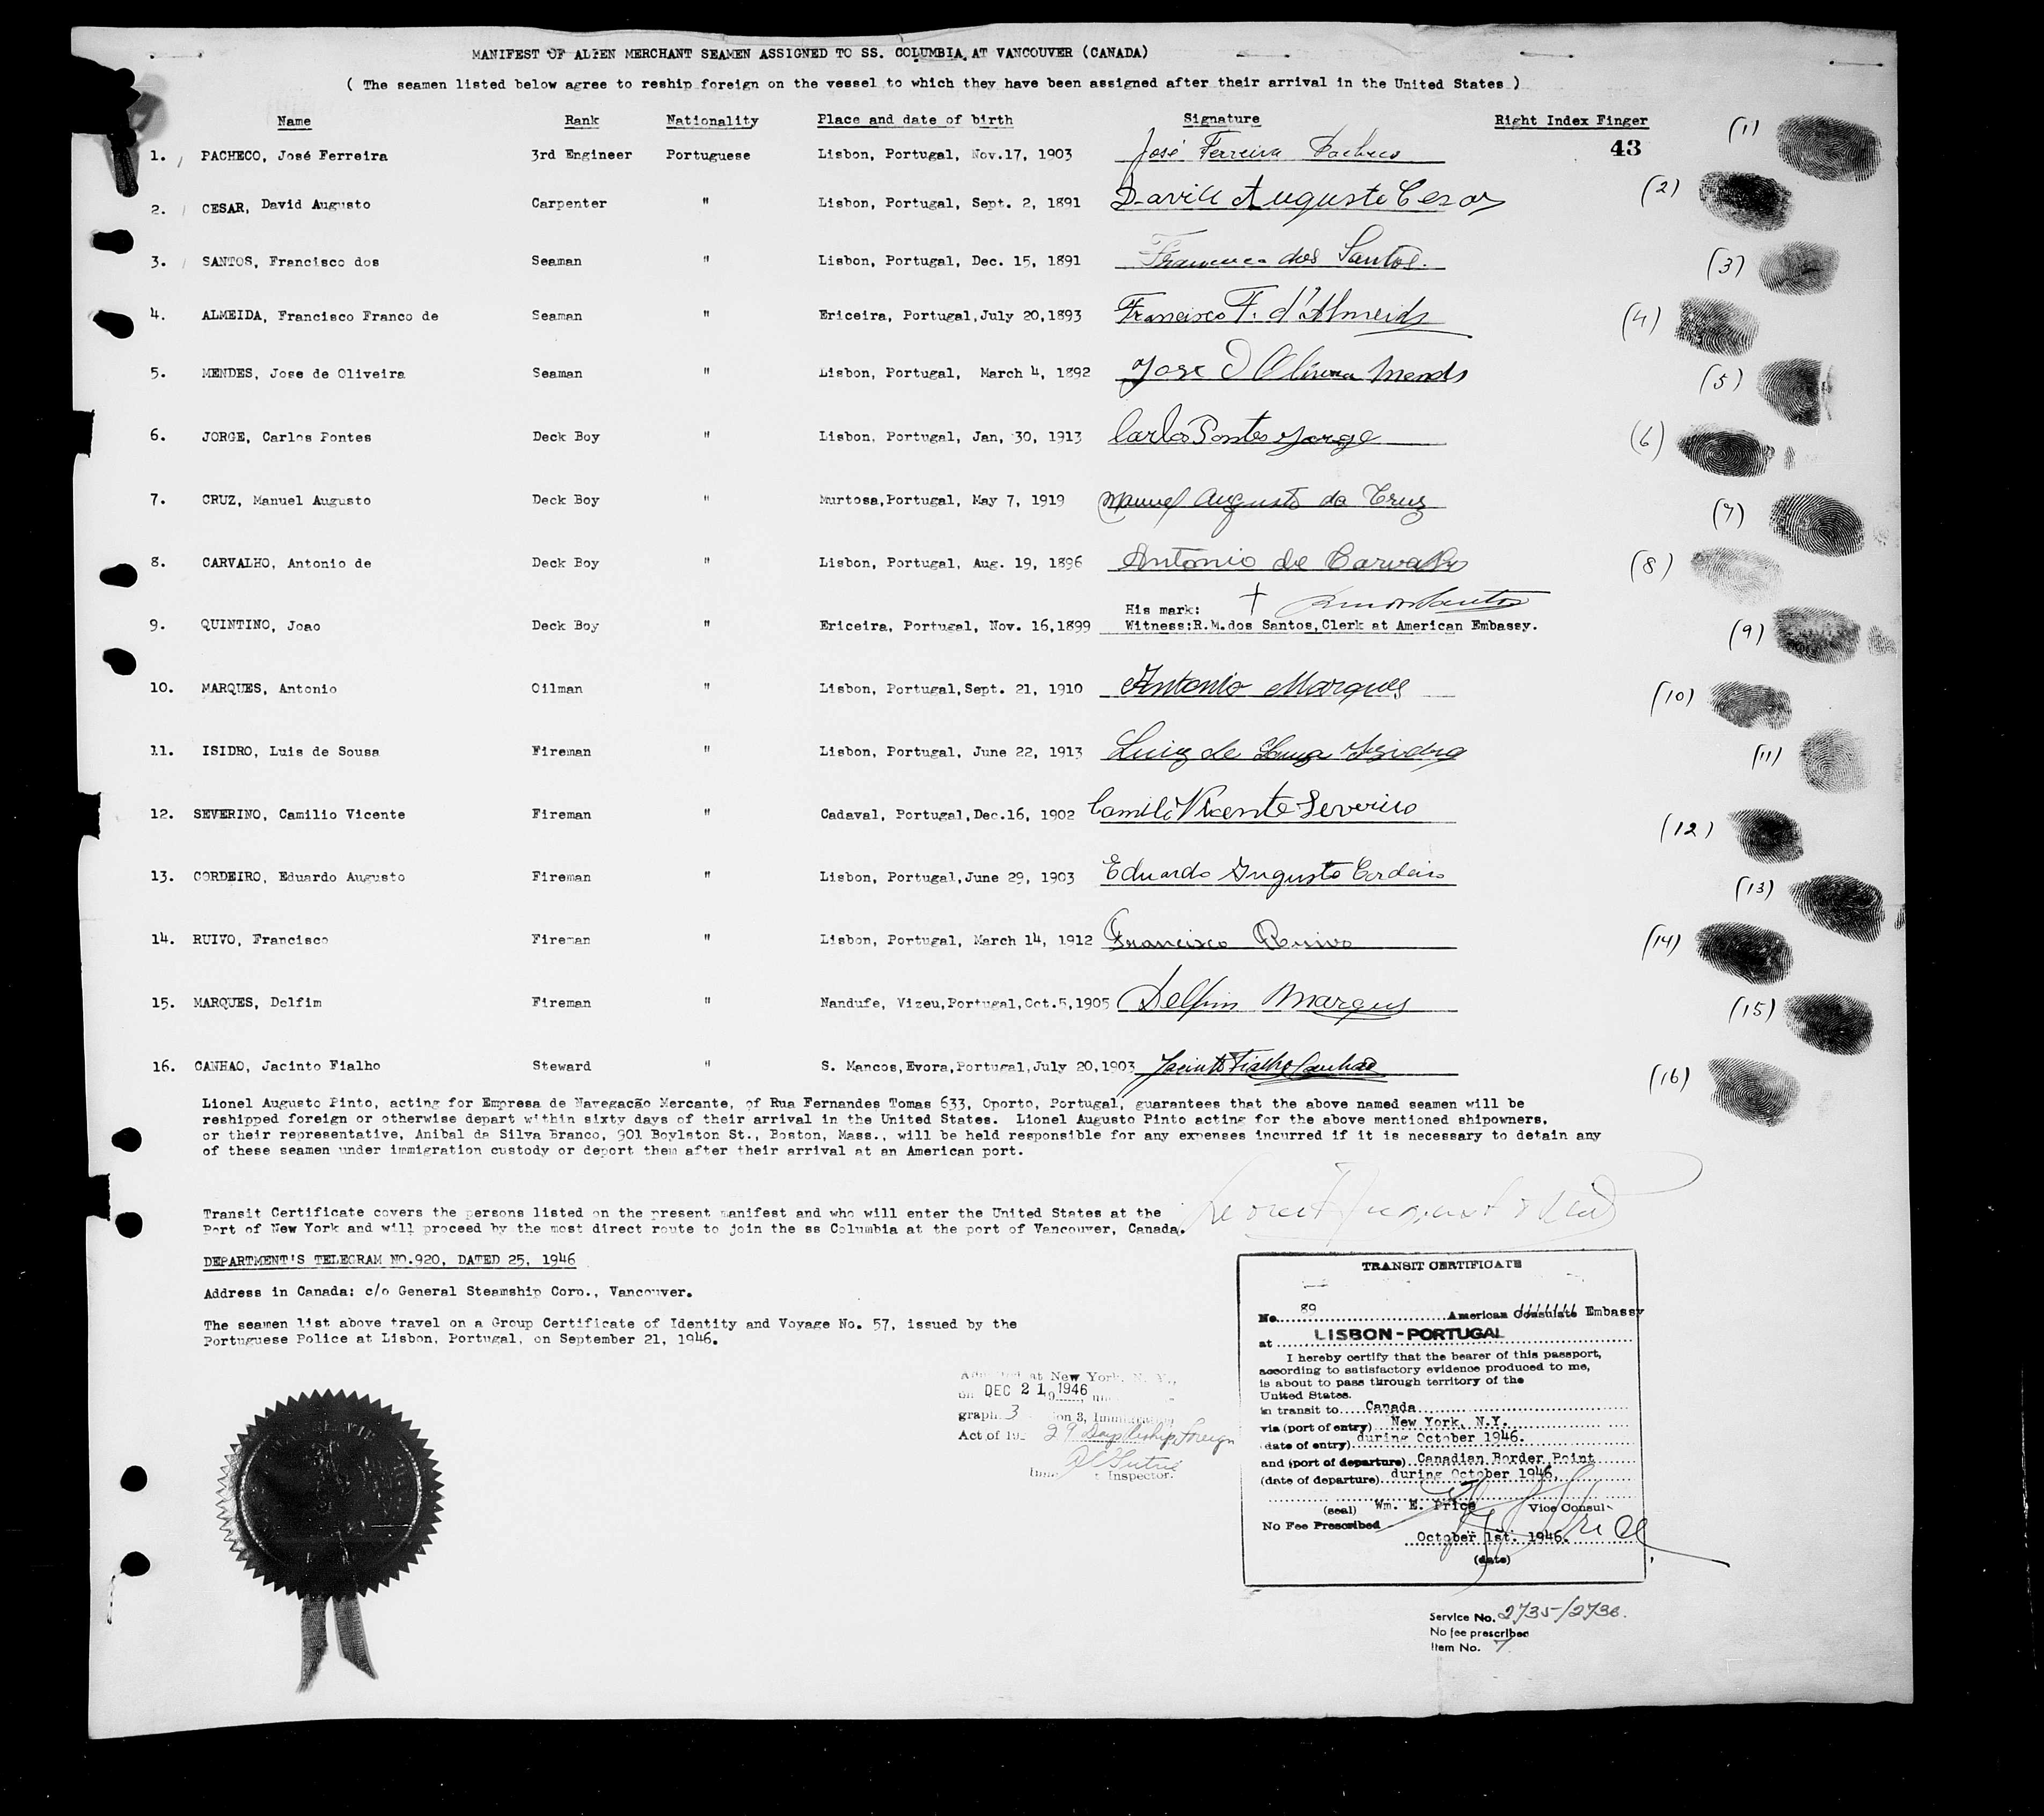 MANIFEST OF ALIEN MERCHANT SEAMEN ASSIGNED TO SS. COLUMBIA AT VANCOUVER (CANADA)
( The seamen listed below agree to reship foreign on the vessel to which they have been assigned after their arrival in the United States )
Name Rank Nationality Place and date of birth Signature Right Index Finger
43
1. PACHECO, José Ferreira 3rd Engineer Portuguese Lisbon, Portugal, Nov.17, 1903 José Ferreira Pacheco (1)
2. CESAR, David Augusto Carpenter " Lisbon, Portugal, Sept. 2, 1891 David Augusto Cesar (2)
3. SANTOS, Francisco dos Seaman " Lisbon, Portugal, Dec. 15, 1891 Francisco dos Santos. (3)
4. ALMEIDA, Francisco Franco de Seaman " Ericeira, Portugal,July 20,1893 Francisco F. d'Almeida (4)
5. MENDES, Jose de Oliveira Seaman " Lisbon, Portugal, March 4, 1892 Jose D Oliveira Mends (5)
6. JORGE, Carlos Pontes Deck Boy " Lisbon, Portugal, Jan, 30, 1913 Carlos Pontes Jorge (6)
7. CRUZ, Manuel Augusto Deck Boy " Murtosa,Portugal, May 7, 1919 Manuel Augusto da Cruz (7)
8. CARVALHO, Antonio de Deck Boy " Lisbon, Portugal, Aug. 19, 1896 Antonio de Carvalho (8)
His mark: †
9. QUINTINO, Joao Deck Boy " Ericeira, Portugal, Nov. 16,1899 Witness:R.M.dos Santos,Clerk at American Embassy. (9)
10. MARQUES, Antonio Oilman " Lisbon, Portugal,Sept. 21, 1910 Antonio Marques (10)
11. ISIDRO, Luis de Sousa Fireman " Lisbon, Portugal, June 22, 1913 Luiz de Sousa Izidro (11)
12. SEVERINO, Camilio Vicente Fireman " Cadaval, Portugal,Dec.16, 1902 Camilo Vicente Severino (12)
13. CORDEIRO, Eduardo Augusto Fireman " Lisbon, Portugal,June 29, 1903 Eduardo Augusto Cordeiro (13)
14. RUIVO, Francisco Fireman " Lisbon, Portugal, March 14, 1912 Francisco Ruivo (14)
15. MARQUES, Delfim Fireman " Nandufe, Vizeu,Portugal,Oct.5,1905 Delfim Marques (15)
16. CANHAO, Jacinto Fialho Steward " S. Mancos,Evora,Portugal,July 20,1903 Jacinto Fialho Canhao (16)
Lionel Augusto Pinto, acting for Empresa de Navegacão Mercante, of Rua Fernandes Tomas 633, Oporto, Portugal, guarantees that the above named seamen will be
reshipped foreign or otherwise depart within sixty days of their arrival in the United States. Lionel Augusto Pinto acting for the above mentioned shipowners,
or their representative, Anibal da Silva Branco, 901 Boylston St., Boston, Mass., will be held responsible for any expenses incurred if it is necessary to detain any
of these seamen under immigration custody or deport them after their arrival at an American port.
Transit Certificate covers the persons listed on the present manifest and who will enter the United States at the
Port of New York and will proceed by the most direct route to join the ss Columbia at the port of Vancouver, Canada.
DEPARTMENT'S TELEGRAM NO.920, DATED 25, 1946
Address in Canada: c/o General Steamship Corp., Vancouver.
The seamen list above travel on a Group Certificate of Identity and Voyage No. 57, issued by the
Portuguese Police at Lisbon, Portugal, on September 21, 1946.
at New York, N. Y.,
on DEC 21 1946
graph 3 ion 3, Immigration
Act of 19 29 Days Reship foreign
Inspector.
TRANSIT CERTIFICATE
No. 89 American Consulate Embassy
at LISBON - PORTUGAL
I hereby certify that the bearer of this passport,
according to satisfactory evidence produced to me,
is about to pass through territory of the
United States.
in transit to Canada
via (port of entry) New York, N.Y.
(date of entry) during October 1946.
and (port of departure) Canadian Border Point
(date of departure) during October 1946,
(seal) Wm. E. Price Vice Consul
No Fee Prescribed
October 1st. 1946.
(date)
Service No. 2735-/2736.
No fee prescribed
Item No. 7